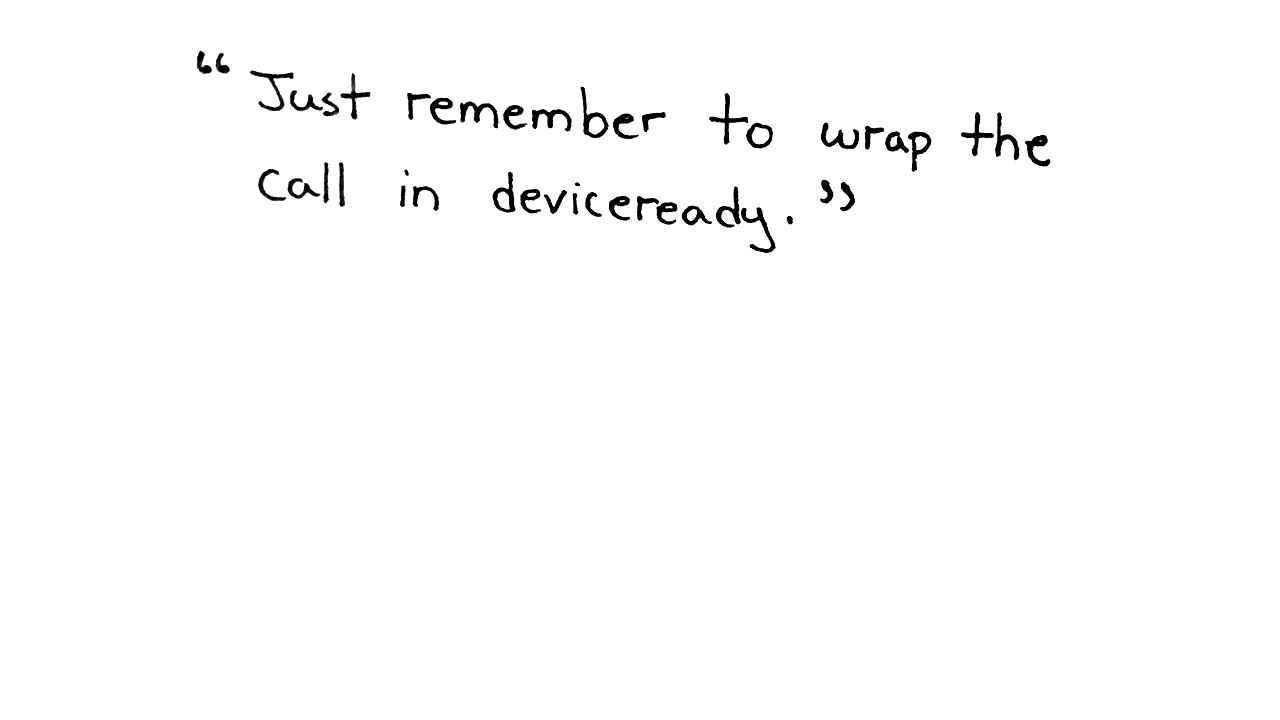 “Just remember to wrap the
call in deviceready.”